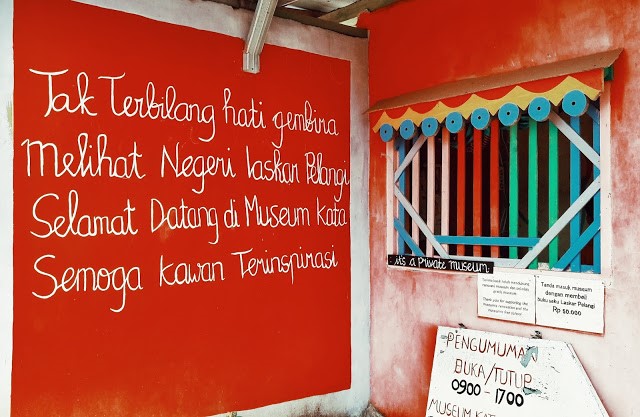 Tak Terbilang hati gembira
Melihat Negeri Laskar Pelangi
Selamat Datang di Museum Kata
Semoga kawan Terinspirasi
it's a Private museum
Tanda masuk museum
dengan membeli
buku saku Laskar Pelangi
Rp 50.000
Thank you for supporting the
PENGUMUMAN
BUKA/TUTUP
0900 - 1700
MUSEUM KAT